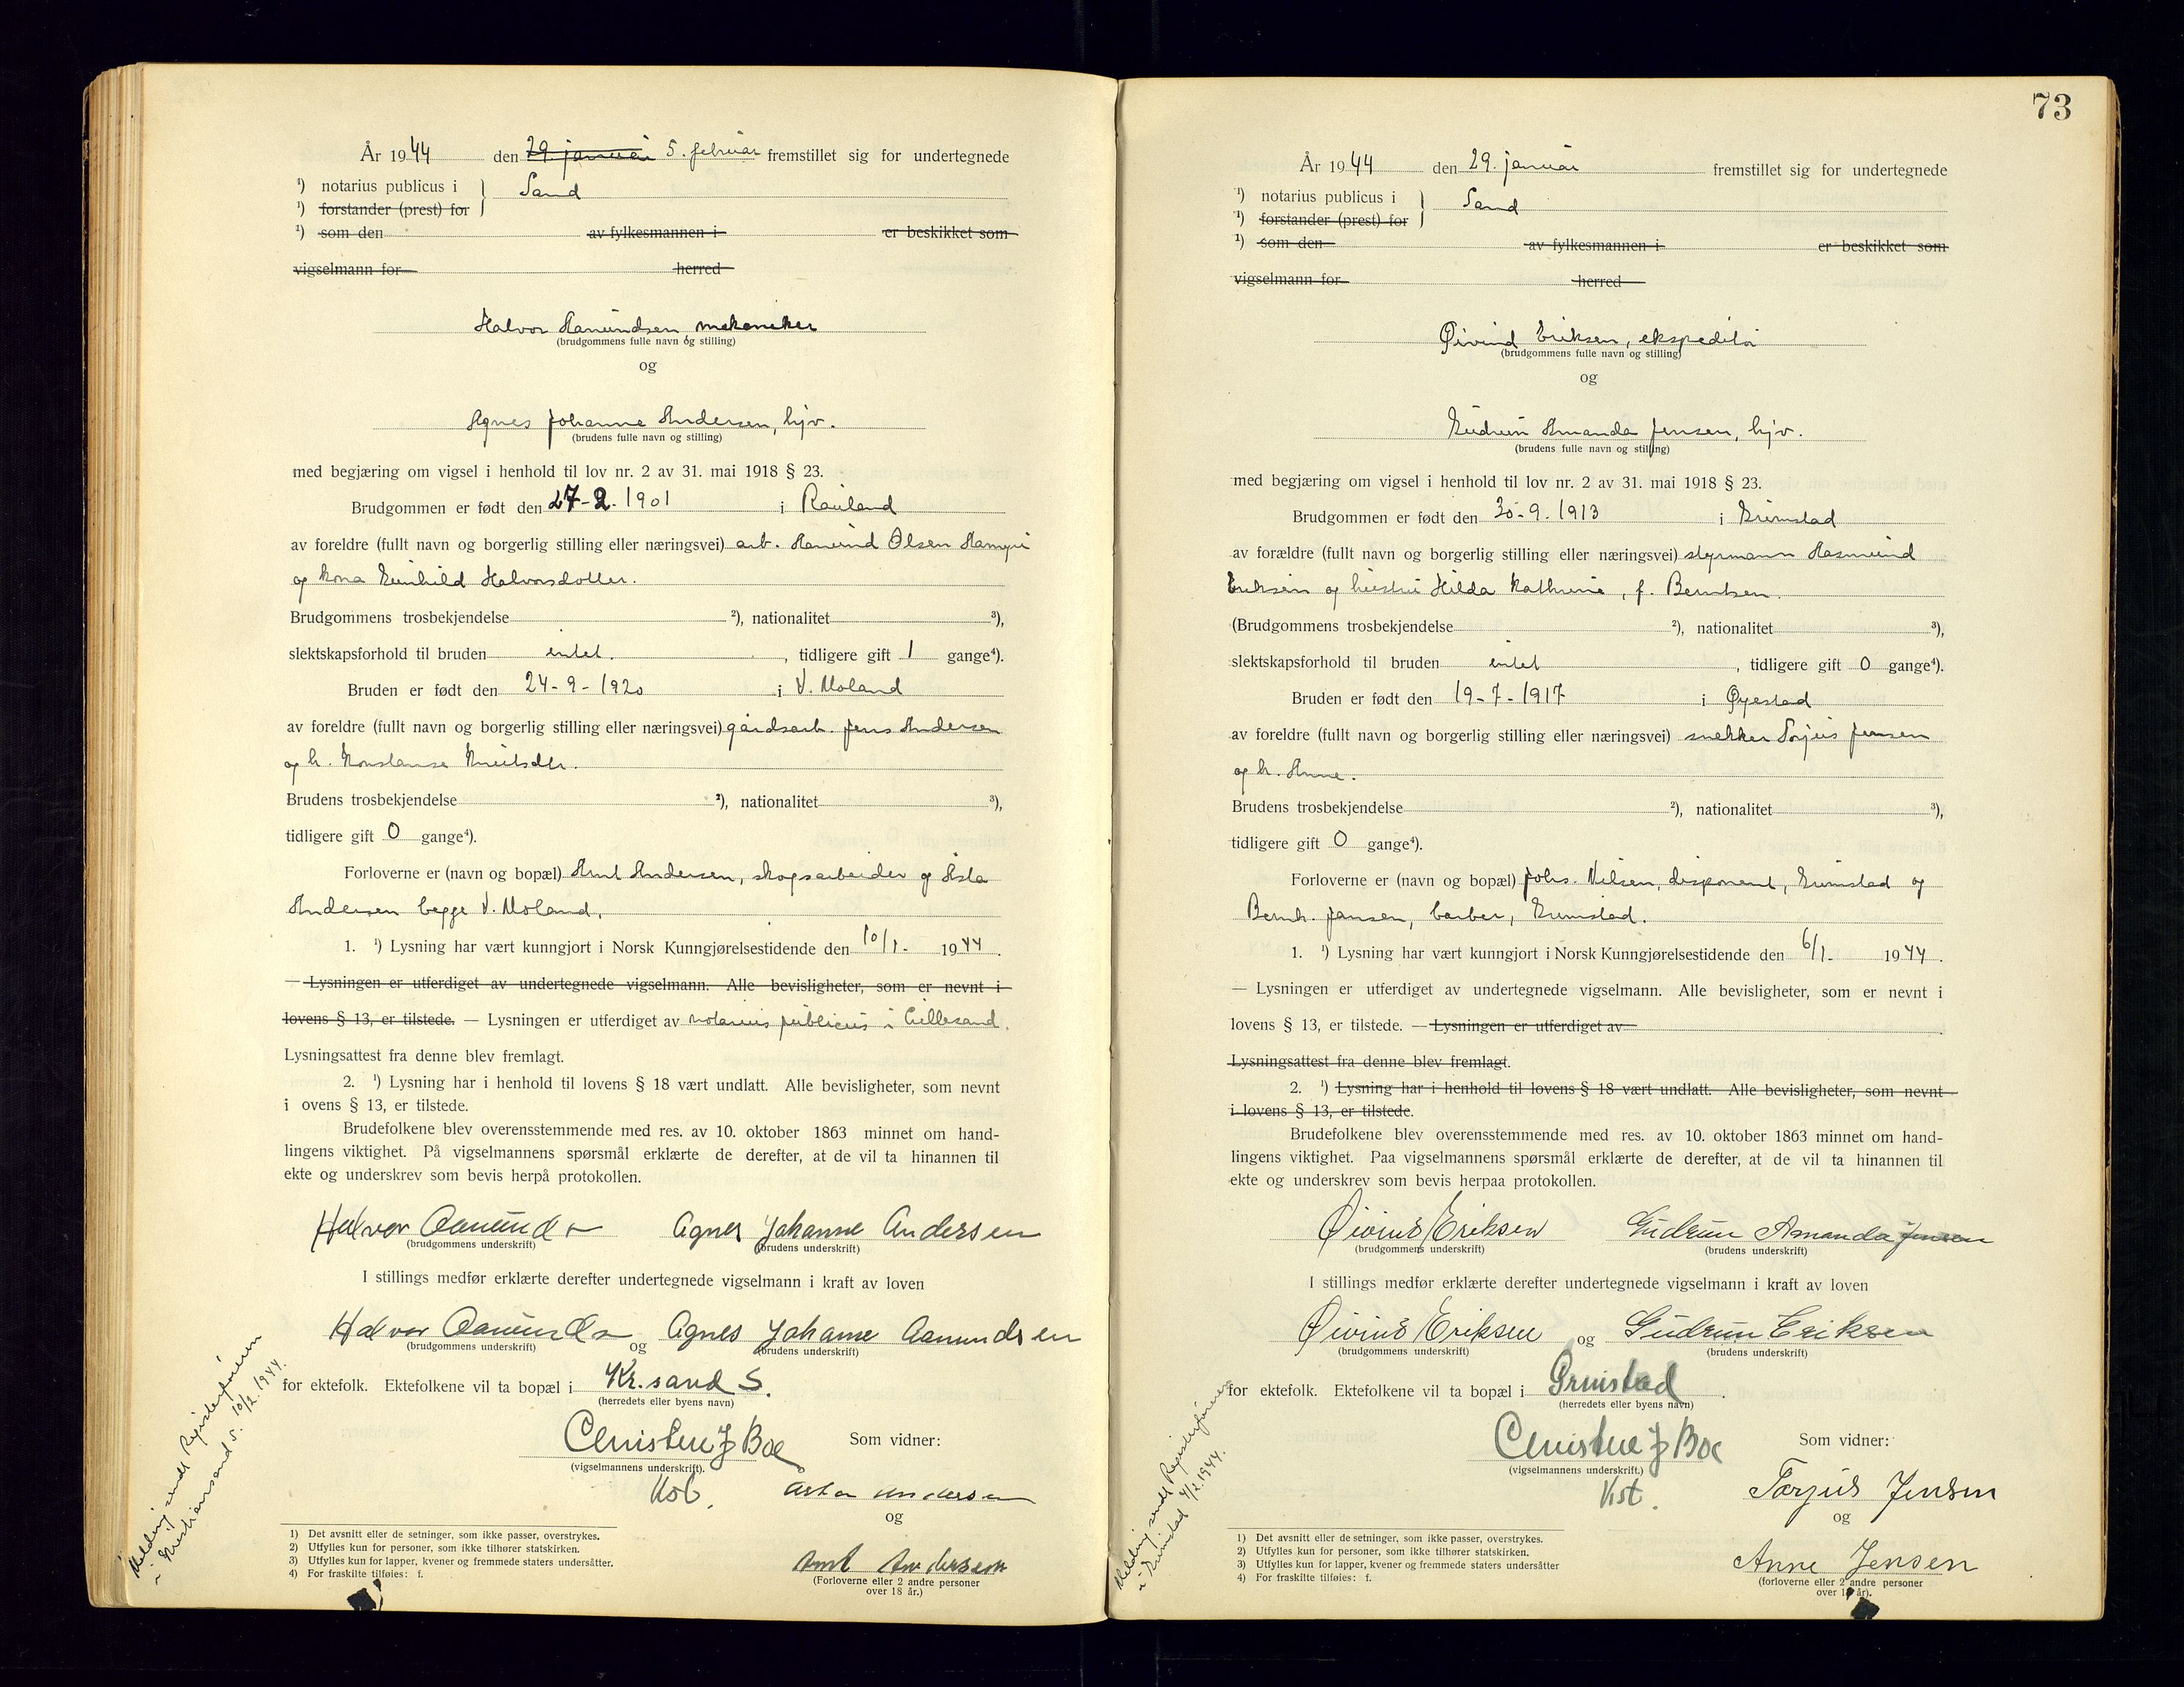 År 1944 den 29. januar 5. februar fremstillet sig for undertegnede
¹) notarius publicus i } Sand
¹) forstander (prest) for
¹) som den av fylkesmannen i er beskikket som
vigselmann for herred
Halvor Aamundsen, mekaniker
(brudgommens fulle navn og stilling)
og
Agnes Johanne Andersen, hjv.
(brudens fulle navn og stilling)
med begjæring om vigsel i henhold til lov nr. 2 av 31. mai 1918 § 23.
Brudgommen er født den 27-2-1901 i Rauland
av foreldre (fullt navn og borgerlig stilling eller næringsvei) arb. Aamund Olsen
og kona Gunhild Halvorsdotter.
Brudgommens trosbekjendelse ²), nationalitet ³),
slektskapsforhold til bruden intet. , tidligere gift 1 gange⁴).
Bruden er født den 24-9-1920 i V. Moland
av foreldre (fullt navn og borgerlig stilling eller næringsvei) gårdsarb. Jens Andersen
og h. Konstanse Knutsdtr.
Brudens trosbekjendelse ²), nationalitet ³),
tidligere gift 0 gange⁴).
Forloverne er (navn og bopæl) Arnt Andersen, skogsarbeider og Asta
Andersen begge V. Moland.
1. ¹) Lysning har vært kunngjort i Norsk Kunngjørelsestidende den 10/1- 1944.
— Lysningen er utferdiget av undertegnede vigselmann. Alle bevisligheter, som er nevnt i
lovens § 13, er tilstede. — Lysningen er utferdiget av notarius publicus i Lillesand.
Lysningsattest fra denne blev fremlagt.
2. ¹) Lysning har i henhold til lovens § 18 vært undlatt. Alle bevisligheter, som nevnt
i ovens § 13, er tilstede.
Brudefolkene blev overensstemmende med res. av 10. oktober 1863 minnet om hand-
lingens viktighet. På vigselmannens spørsmål erklærte de derefter, at de vil ta hinannen til
ekte og underskrev som bevis herpå protokollen.
Halvor Aamundsn Agnes Johanne Andersen
(brudgommens underskrift) (brudens underskrift)
I stillings medfør erklærte derefter undertegnede vigselmann i kraft av loven
Halvor Aamundsn og Agnes Johanne Aamundsen
(brudgommens underskrift) (brudens underskrift)
for ektefolk. Ektefolkene vil ta bopæl i Kr.sand S.
(herredets eller byens navn)
Christen J Boe Som vidner:
(vigselmannens underskrift).
Kst. Asta Andersen
og
Arnt Andersen
(Forloverne eller 2 andre personer
over 18 år.)
1) Det avsnitt eller de setninger, som ikke passer, overstrykes.
2) Utfylles kun for personer, som ikke tilhører statskirken.
3) Utfylles kun for lapper, kvener og fremmede staters undersåtter.
4) For fraskilte tilføies: f.
Melding sendt Registerføreren
i Kristiansand S. 10/2. 1944.
73
År 1944 den 29. januar fremstillet sig for undertegnede
¹) notarius publicus i } Sand
¹) forstander (prest) for
¹) som den av fylkesmannen i er beskikket som
vigselmann for herred
Øivind Eriksen, ekspeditør
(brudgommens fulle navn og stilling)
og
Gudrun Amanda Jensen, hjv.
(brudens fulle navn og stilling)
med begjæring om vigsel i henhold til lov nr. 2 av 31. mai 1918 § 23.
Brudgommen er født den 30-9.1913 i Grimstad
av forældre (fullt navn og borgerlig stilling eller næringsvei) styrmann Rasmund
Eriksen og hustru Hilda Kathrine, f. Berntsen.
(Brudgommens trosbekjendelse ²), nationalitet ³),
slektskapsforhold til bruden intet , tidligere gift 0 gange⁴).
Bruden er født den 19-7-1917 i Øyestad
av foreldre (fullt navn og borgerlig stilling eller næringsvei) snekker Torjus Jensen
og h. Anne.
Brudens trosbekjendelse ²), nationalitet ³),
tidligere gift 0 gange⁴).
Forloverne er (navn og bopæl) Johs. Nilsen, disponent, Grimstad og
Bernh. Jansen, barber, Grimstad.
1. ¹) Lysning har vært kunngjort i Norsk Kunngjørelsestidende den 6/1- 1944.
— Lysningen er utferdiget av undertegnede vigselmann. Alle bevisligheter, som er nevnt i
lovens § 13, er tilstede. — Lysningen er utferdiget av
Lysningsattest fra denne blev fremlagt.
2. ¹) Lysning har i henhold til lovens § 18 vært undlatt. Alle bevisligheter, som nevnt
i lovens § 13, er tilstede.
Brudefolkene blev overensstemmende med res. av 10. oktober 1863 minnet om hand-
lingens viktighet. Paa vigselmannens spørsmål erklærte de derefter, at de vil ta hinannen til
ekte og underskrev som bevis herpaa protokollen.
Øivind Eriksen Gudrun Amanda Jensen
(brudgommens underskrift) (brudens underskrift)
I stillings medfør erklærte derefter undertegnede vigselmann i kraft av loven
Øivind Eriksen og Gudrun Eriksen
(brudgommens underskrift) (brudens underskrift)
for ektefolk. Ektefolkene vil ta bopæl i Grimstad.
(herredets eller byens navn)
Christen J Boe Som vidner:
(vigselmannens underskrift.)
Kst. Torjus Jensen
og
Anne Jensen
(forloverne eller 2 andre personer
over 18 år).
1) Det avsnitt eller de setninger, som ikke passer, overstrykes.
2) Utfylles kun for personer, som ikke tilhører statskirken.
3) Utfylles kun for lapper, kvener og fremmede staters undersåtter
4) For fraskilte tilføies: f.
Melding sendt Registerføreren
i Grimstad 4/2.1944.